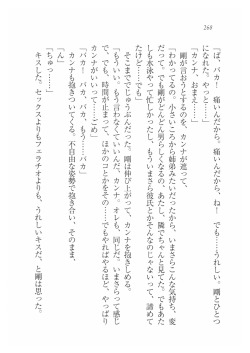 268
「ば、バカ！　痛いんだから、痛いんだから、ね！　でも……うれしい。剛とひとつ
になれた。やっと……」
「カンナ、おまえ……」
剛が言おうとするのを、カンナが遮って、
「わかってるの。小さいころから姉弟みたいだったから、いまさらこんな気持ち、変
だって。でも剛がどんどん男らしくなるの、あたし、隣でちゃんと見てた。でもあた
しも水泳やって忙しかったし、もういまさら彼氏とかそんなのじゃないって、諦めて
たけど……でも」
そこまででじゅうぶんだった。剛は伸び上がって、カンナを抱きしめる。
「もういい。もう言わなくていいんだ、カンナ。オレも、同じだ。いまさらって感じ
で、でも、時間が止まってて、ほかのコとかをその……でもやればやるほど、やっぱり
カンナがいいって……め」
「バカ！　バカ、バカ、もう……バカ」
カンナも抱きついてくる。不自由な姿勢で抱き合い、そのまま。
「ん」
「ちゅっ……」
キスした。セックスよりもフェラチオよりも、うれしいキスだ、と剛は思った。